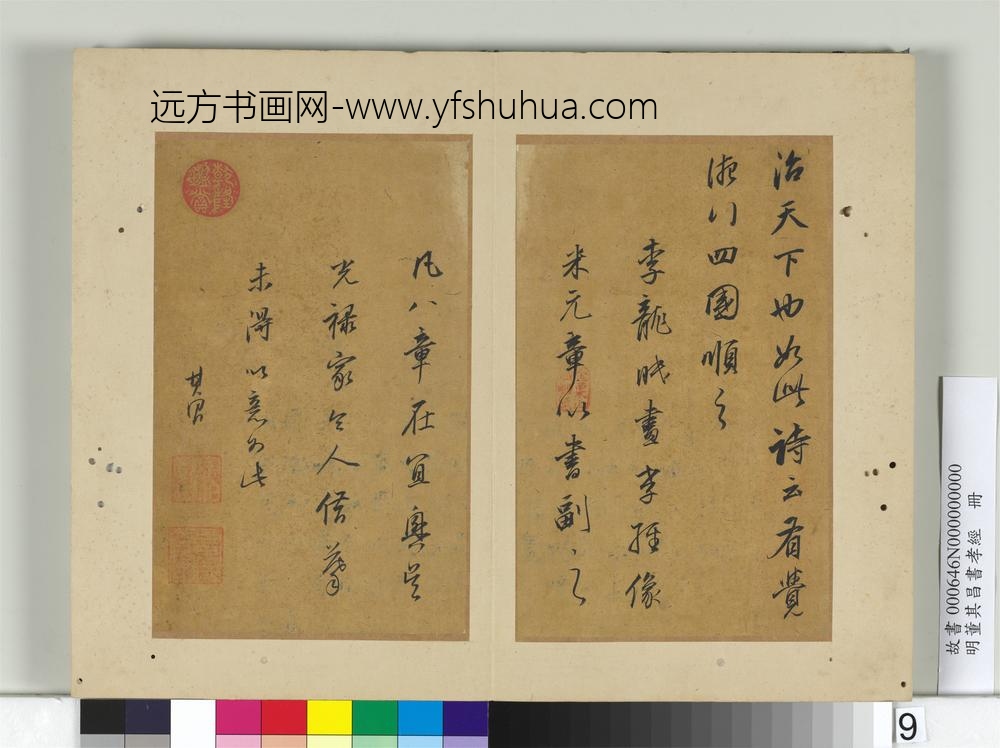 远方书画网-www.yfshuhua.com
治天下也如此詩云有覺
德行四國順之
李龍眠畫孝經像
米元章以書副之
凡八章在宜興吳
光祿家令人借摹
未得以意為此
其昌
乾隆鑑賞
故書 000646N000000000
明董其昌書孝經 冊
9